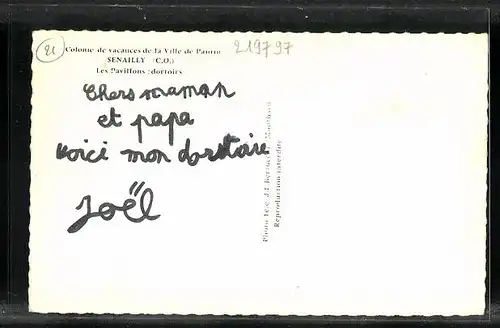 21
219797
Colonie de vacances de la Ville de Pantin
SENAILLY (C.O.)
Les Pavillons dortoirs
Chers maman
et papa
voici mon dortoire
Joël
Reproduction interdite